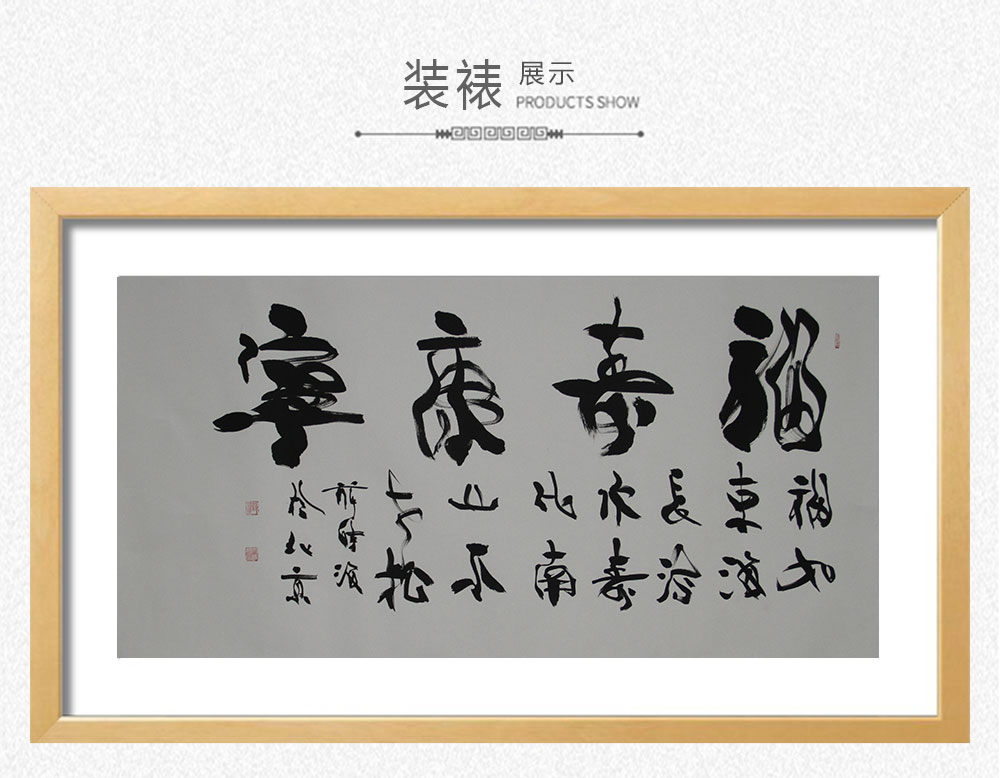 装裱
展示
PRODUCTS SHOW
福寿康寧
福如
東海
長流
水寿
比南
山不
老松
於北京